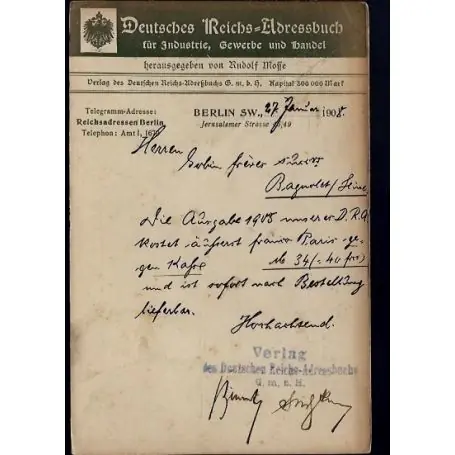 Deutsches Reichs-Adressbuch
für Industrie, Gewerbe und Handel
herausgegeben von Rudolf Mosse
Verlag des Deutschen Reichs-Adreßbuchs G. m. b. H. Kapital 300 000 Mark
Telegramm-Adresse:
Reichsadressen Berlin
Telephon: Amt I,
BERLIN SW., 27. Januar 1908.
Jerusalemer Strasse 48/49
Herren
frères
Bagnolet/Seine
Die Ausgabe 1908 unseres D.R.A.
kostet äußerst franco Paris ge-
gen Kasse M 34/- = 40 frs
und ist sofort nach Bestellung
lieferbar.
Hochachtend.
Verlag
des Deutschen Reichs-Adressbuchs
G. m. b. H.